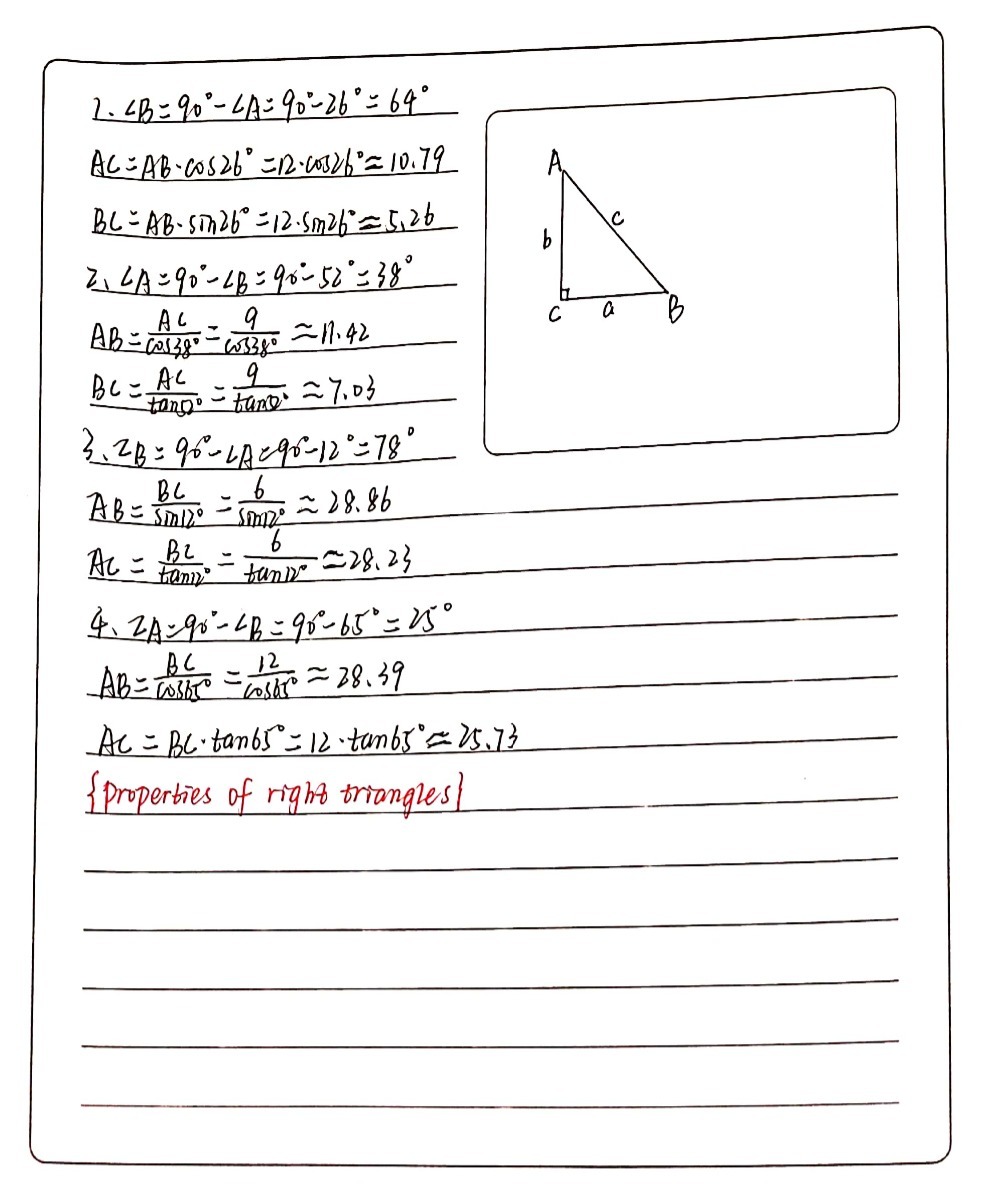 1、∠B=90°-∠A=90°-26°=64°
AC=AB·cos26°=12·cos26°≈10.79
BC=AB·sin26°=12·sin26°≈5.26
2、∠A=90°-∠B=90°-52°=38°
AB=AC/cos38°=9/cos38°≈11.42
BC=AC/tan52°=9/tan52°≈7.03
3、∠B=90°-∠A=90°-12°=78°
AB=BC/sin12°=6/sin12°≈28.86
AC=BC/tan12°=6/tan12°≈28.23
4、∠A=90°-∠B=90°-65°=25°
AB=BC/cos65°=12/cos65°≈28.39
AC=BC·tan65°=12·tan65°≈25.73
{properties of right triangles}
A
c
b
C a B